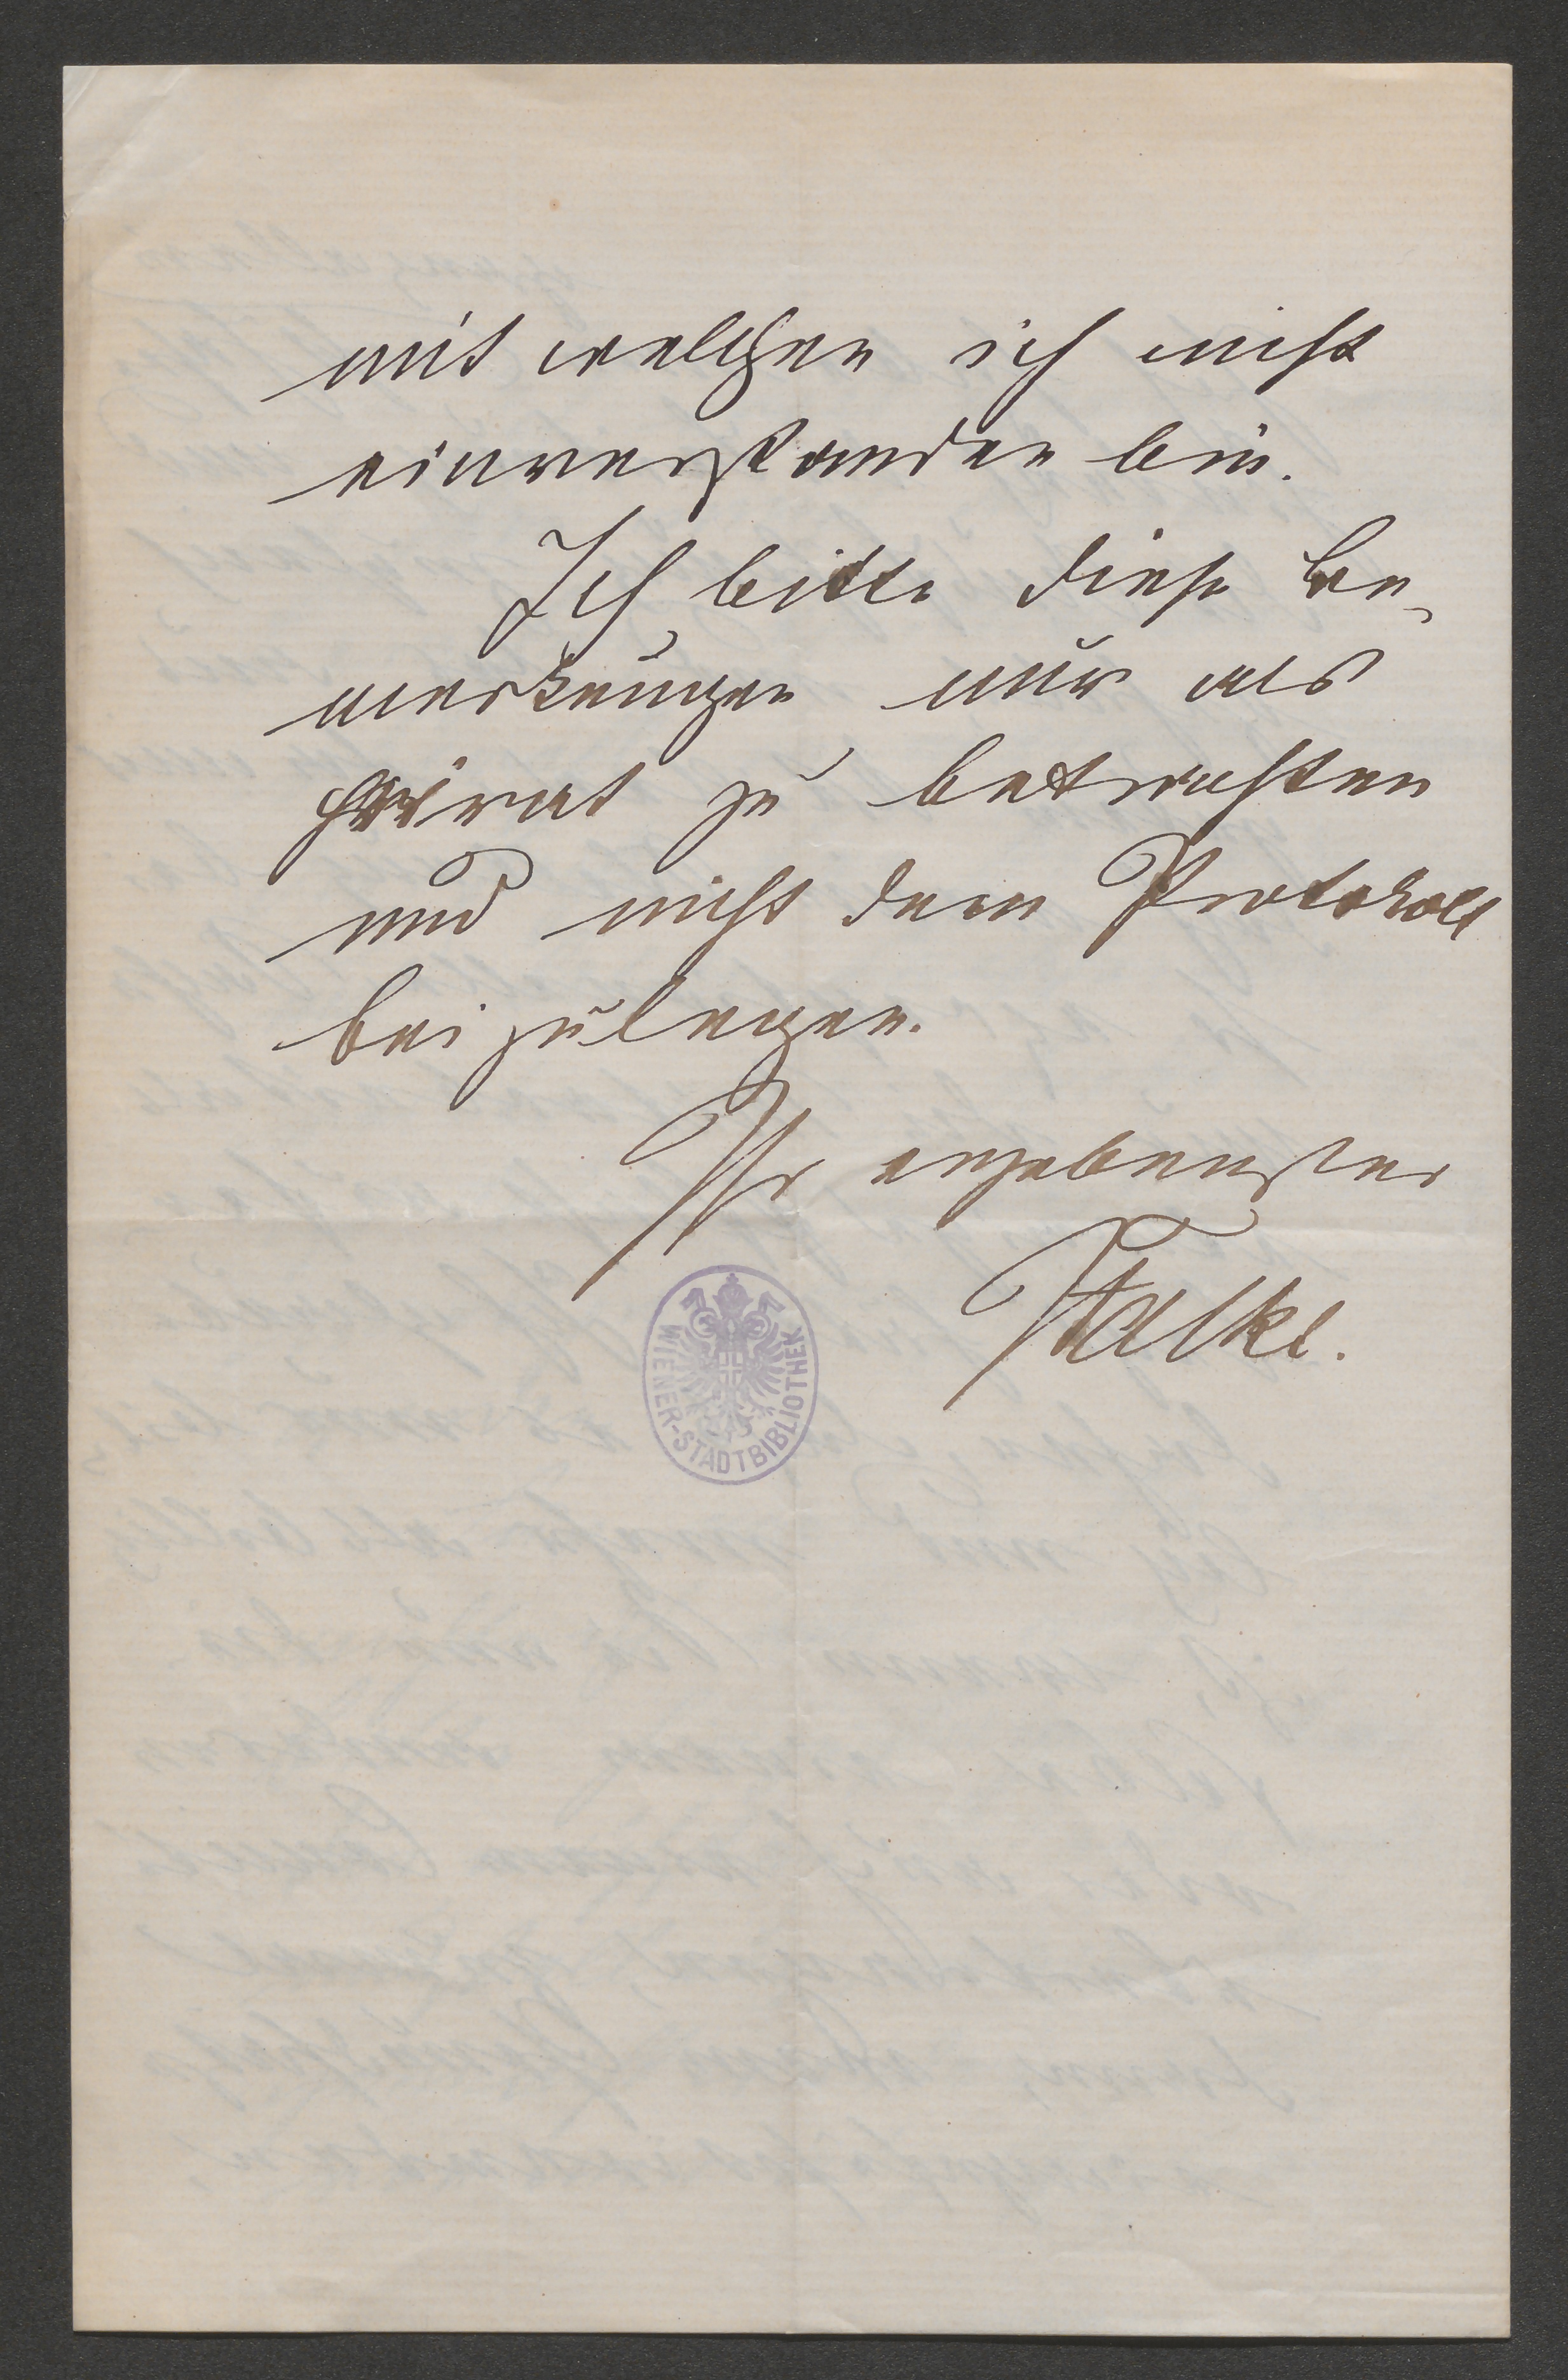 mit welchen ich nicht
einverstanden bin.
Ich bitte diese Be-
merkungen nur als
privat zu betrachten
und nicht dem Protokoll
beizulegen.
Ihr ergebenster
Falke.
WIENER-STADTBIBLIOTHEK